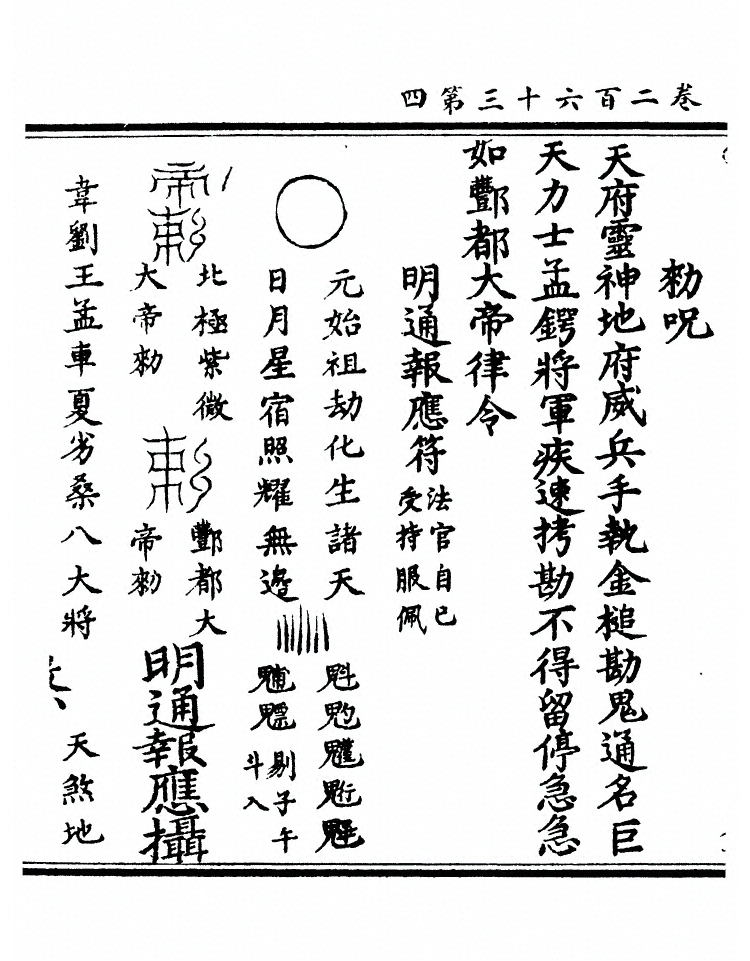 卷二百六十三第四
勑呪
天府靈神地府威兵手執金槌勘鬼通名巨
天力士孟鍔將軍疾速拷勘不得留停急急
如酆都大帝律令
明通報應符
法官自已
受持服佩
元始祖劫化生諸天
日月星宿照耀無邊
魁䰢魓
剔子午
斗入
北極紫微
大帝勑
酆都大
帝勑
明通報應攝
韋劉王孟車夏劣桑八大將
天煞地